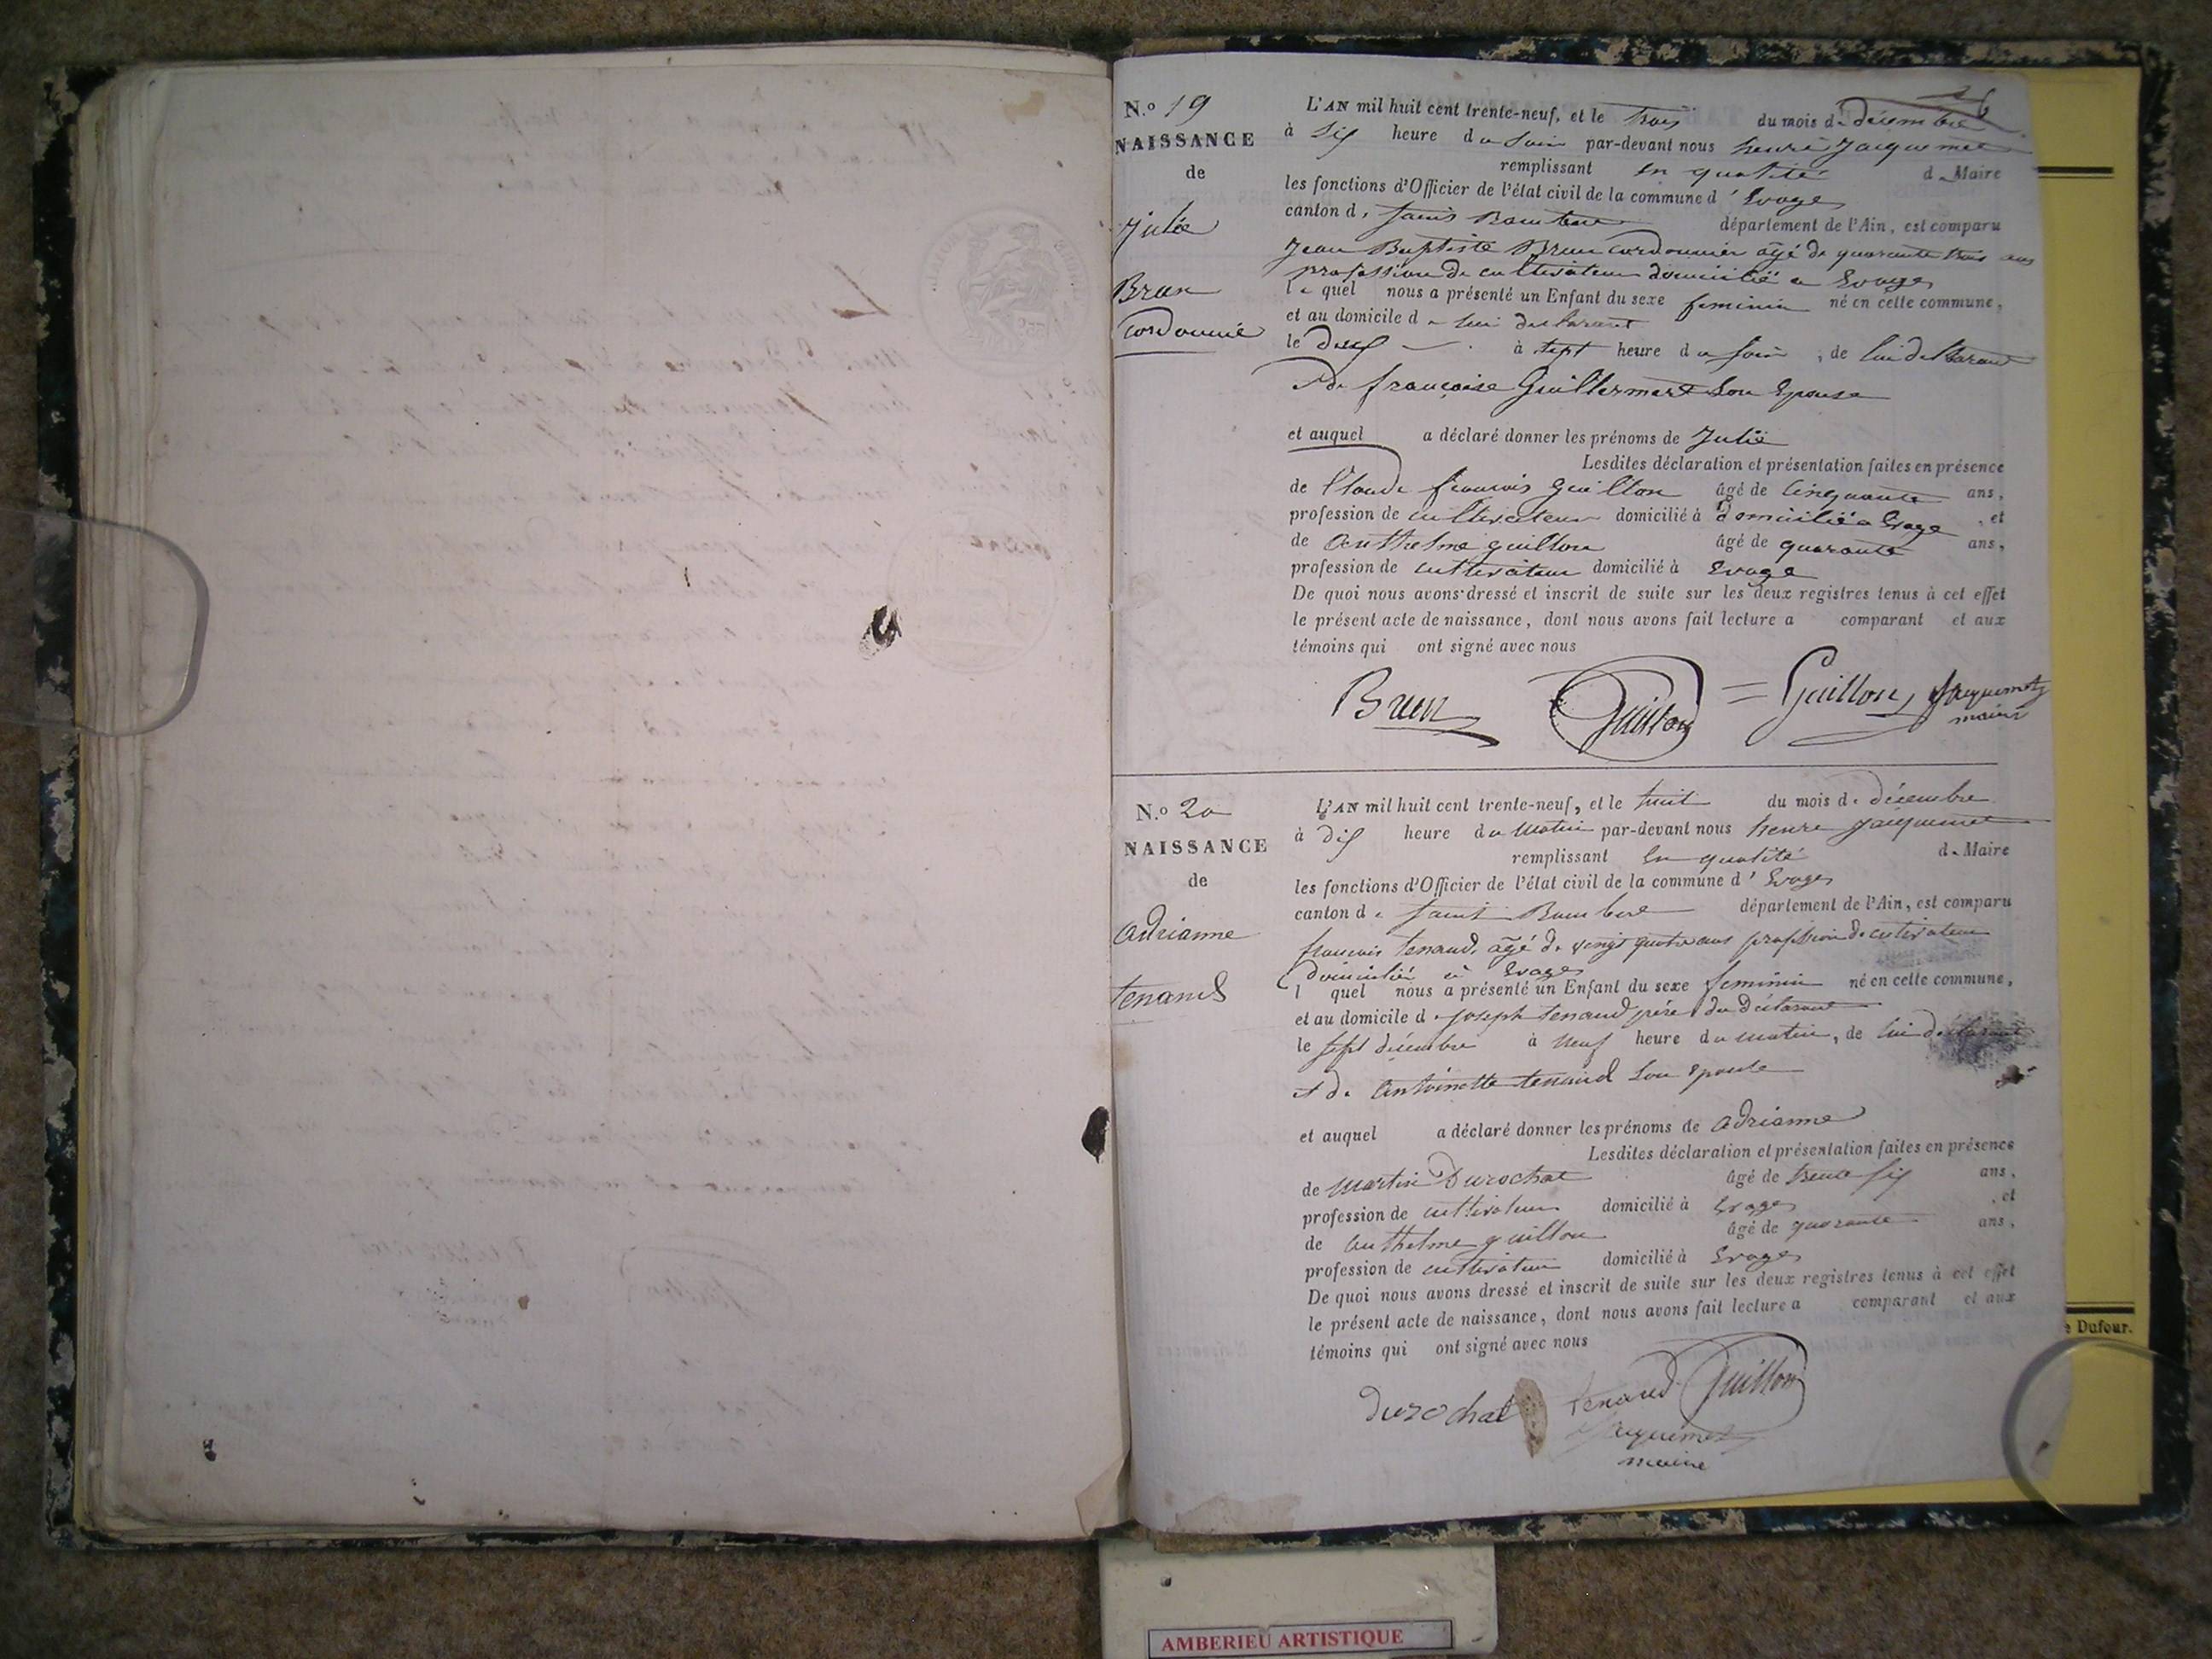 26
N.º 19
NAISSANCE
de
Julie
Brun
Cordonnié
L'AN mil huit cent trente-neuf, et le trois du mois de décembre
à six heure du soir par-devant nous henri Jacquemet
remplissant en qualité de Maire
les fonctions d'Officier de l'état civil de la commune d' Evoges
canton de saint Rambert département de l'Ain, est comparu
Jean Baptiste Brun cordonnier âgé de quarante trois ans
profession de cultivateur domicilié a Evoges
le quel nous a présenté un Enfant du sexe feminin né en cette commune,
et au domicile de lui declarant
le deux à sept heure du soir, de lui declarant
et de françoise Guillermet son Epouse
et auquel a déclaré donner les prénoms de Julie
Lesdites déclaration et présentation faites en présence
de Claude françois guillon âgé de Cinquante ans,
profession de cultivateur domicilié à domicilié a Evoge, et
de Anthelme guillon âgé de quarante ans,
profession de cultivateur domicilié à Evoge
De quoi nous avons dressé et inscrit de suite sur les deux registres tenus à cet effet
le présent acte de naissance, dont nous avons fait lecture a comparant et aux
témoins qui ont signé avec nous
Brun Guillon Guillon Jacquemet
maire
N.º 20
NAISSANCE
de
adrianne
tenand
L'AN mil huit cent trente-neuf, et le huit du mois de décembre
à dix heure du matin par-devant nous henri Jacquemet
remplissant en qualité de Maire
les fonctions d'Officier de l'état civil de la commune d' Evoges
canton de saint Rambert département de l'Ain, est comparu
françois tenand âgé de vingt quatre ans profession de cultivateur
domicilié à Evoges
l quel nous a présenté un Enfant du sexe feminin né en cette commune,
et au domicile de joseph tenand père du déclarant
le sept décembre à neuf heure du matin, de lui declarant
et de Antoinette tenand son epouse
et auquel a déclaré donner les prénoms de adrianne
Lesdites déclaration et présentation faites en présence
de Martin Durochat âgé de trente six ans,
profession de cultivateur domicilié à Evoges, et
de Anthelme guillon âgé de quarante ans,
profession de cultivateur domicilié à Evoges
De quoi nous avons dressé et inscrit de suite sur les deux registres tenus à cet effet
le présent acte de naissance, dont nous avons fait lecture a comparant et aux
témoins qui ont signé avec nous
durochat tenand Guillon
Jacquemet
maire
e Dufour.
AMBERIEU ARTISTIQUE